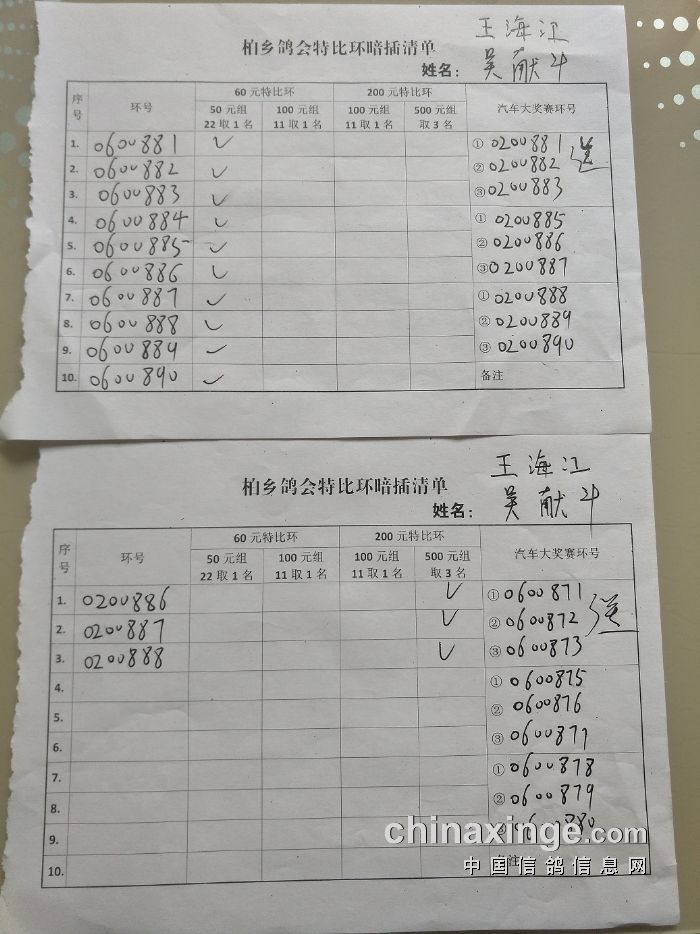 王海江
柏乡鸽会特比环暗插清单
姓名： 吴献斗
序号 环号 60元特比环 200元特比环 汽车大奖赛环号
50元组 100元组 100元组 500元组
22取1名 11取1名 11取1名 取3名
1. 0600881 ✓ ① 0200881 送
2. 0600882 ✓ ② 0200882
3. 0600883 ✓ ③ 0200883
4. 0600884 ✓ ① 0200885
5. 0600885 ✓ ② 0200886
6. 0600886 ✓ ③ 0200887
7. 0600887 ✓ ① 0200888
8. 0600888 ✓ ② 0200889
9. 0600889 ✓ ③ 0200890
10. 0600890 ✓ 备注
王海江
柏乡鸽会特比环暗插清单
姓名： 吴献斗
序号 环号 60元特比环 200元特比环 汽车大奖赛环号
50元组 100元组 100元组 500元组
22取1名 11取1名 11取1名 取3名
1. 0200886 ✓ ① 0600871 送
2. 0200887 ✓ ② 0600872
3. 0200888 ✓ ③ 0600873
4. ① 0600875
5. ② 0600876
6. ③ 0600877
7. ① 0600878
8. ② 0600879
9. 0600880
10. 备注
chinaxinge.com
中国信鸽信息网